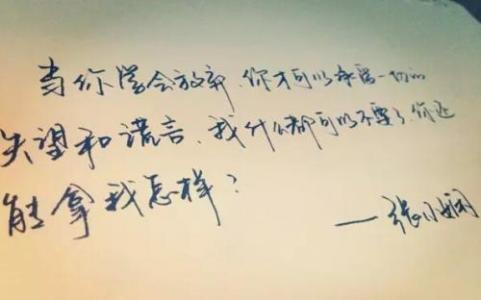 当你学会放弃,你才可以承受一切的
失望和谎言,我什么都可以不要了,你还
能拿我怎样?
——张小娴